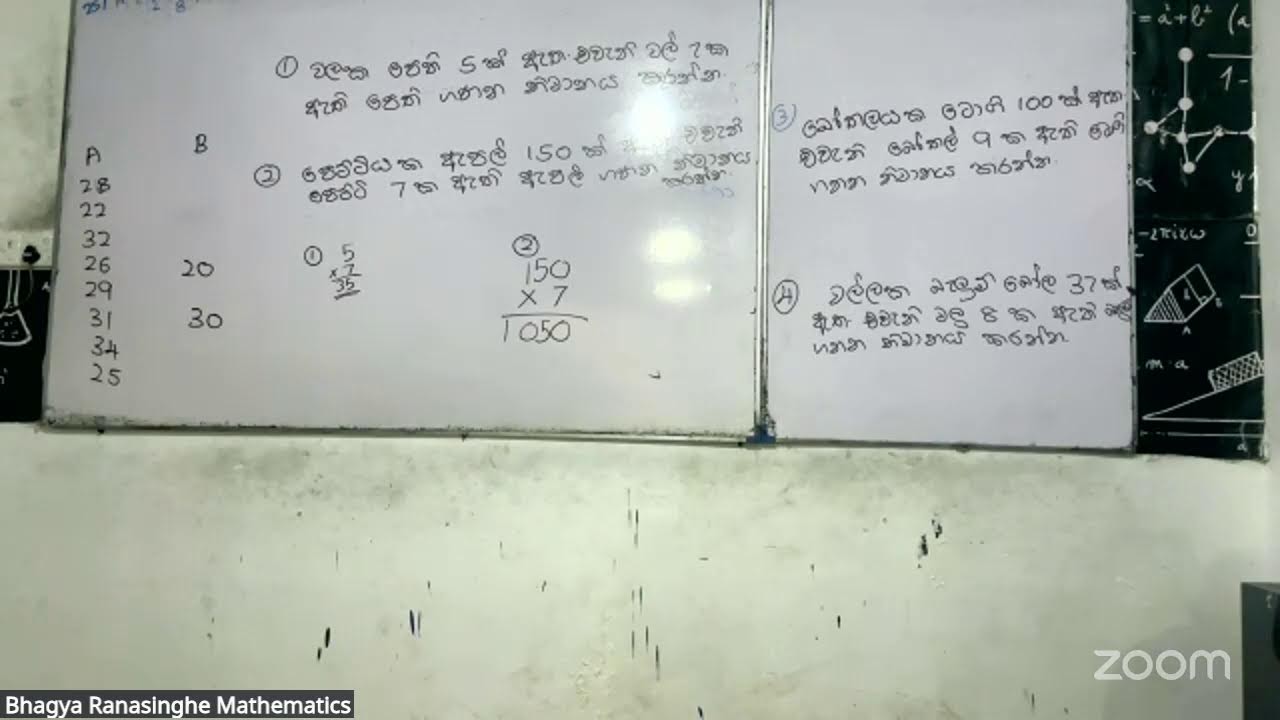 ① මලක පෙති 5ක් ඇත. එවැනි මල් 7ක
ඇති පෙති ගණන නිමානය කරන්න.
② පෙට්ටියක ඇපල් 150ක් එවැනි
පෙට්ටි 7ක ඇති ඇපල් ගණන නිමානය
කරන්න.
A B
28
22
32
26 20
29
31 30
34
25
① 5
× 7
35
② 150
× 7
1050
③ බෝතලයක ටොෆි 100ක් ඇත
එවැනි බෝතල් 9ක ඇති ටොෆි
ගණන නිමානය කරන්න.
④ මල්ලක බැලුම් බෝල 37ක්
ඇත. එවැනි මලු 8ක ඇති
ගණන නිමානය කරන්න.
= a² + b² (a
1-
y
-2πixω
m·a
zoom
Bhagya Ranasinghe Mathematics